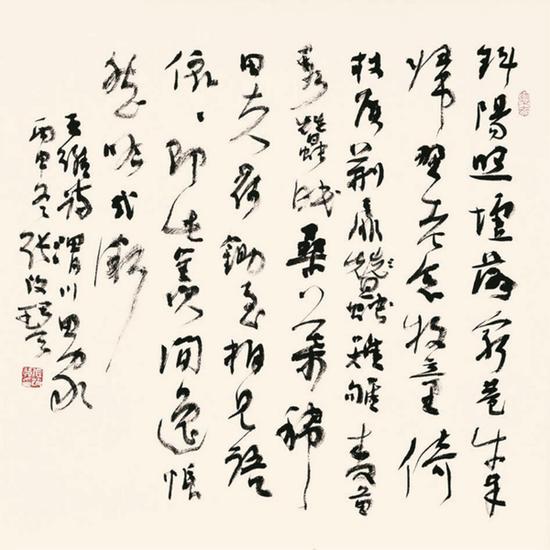 斜陽照墟落窮巷牛羊
歸野老念牧童倚
杖候荊扉雉雊麥苗
秀蠶眠桑葉稀
田夫荷鋤至相見語
依依即此羨閒逸悵
然吟式微
王維詩渭川田家
丙申冬張改琴